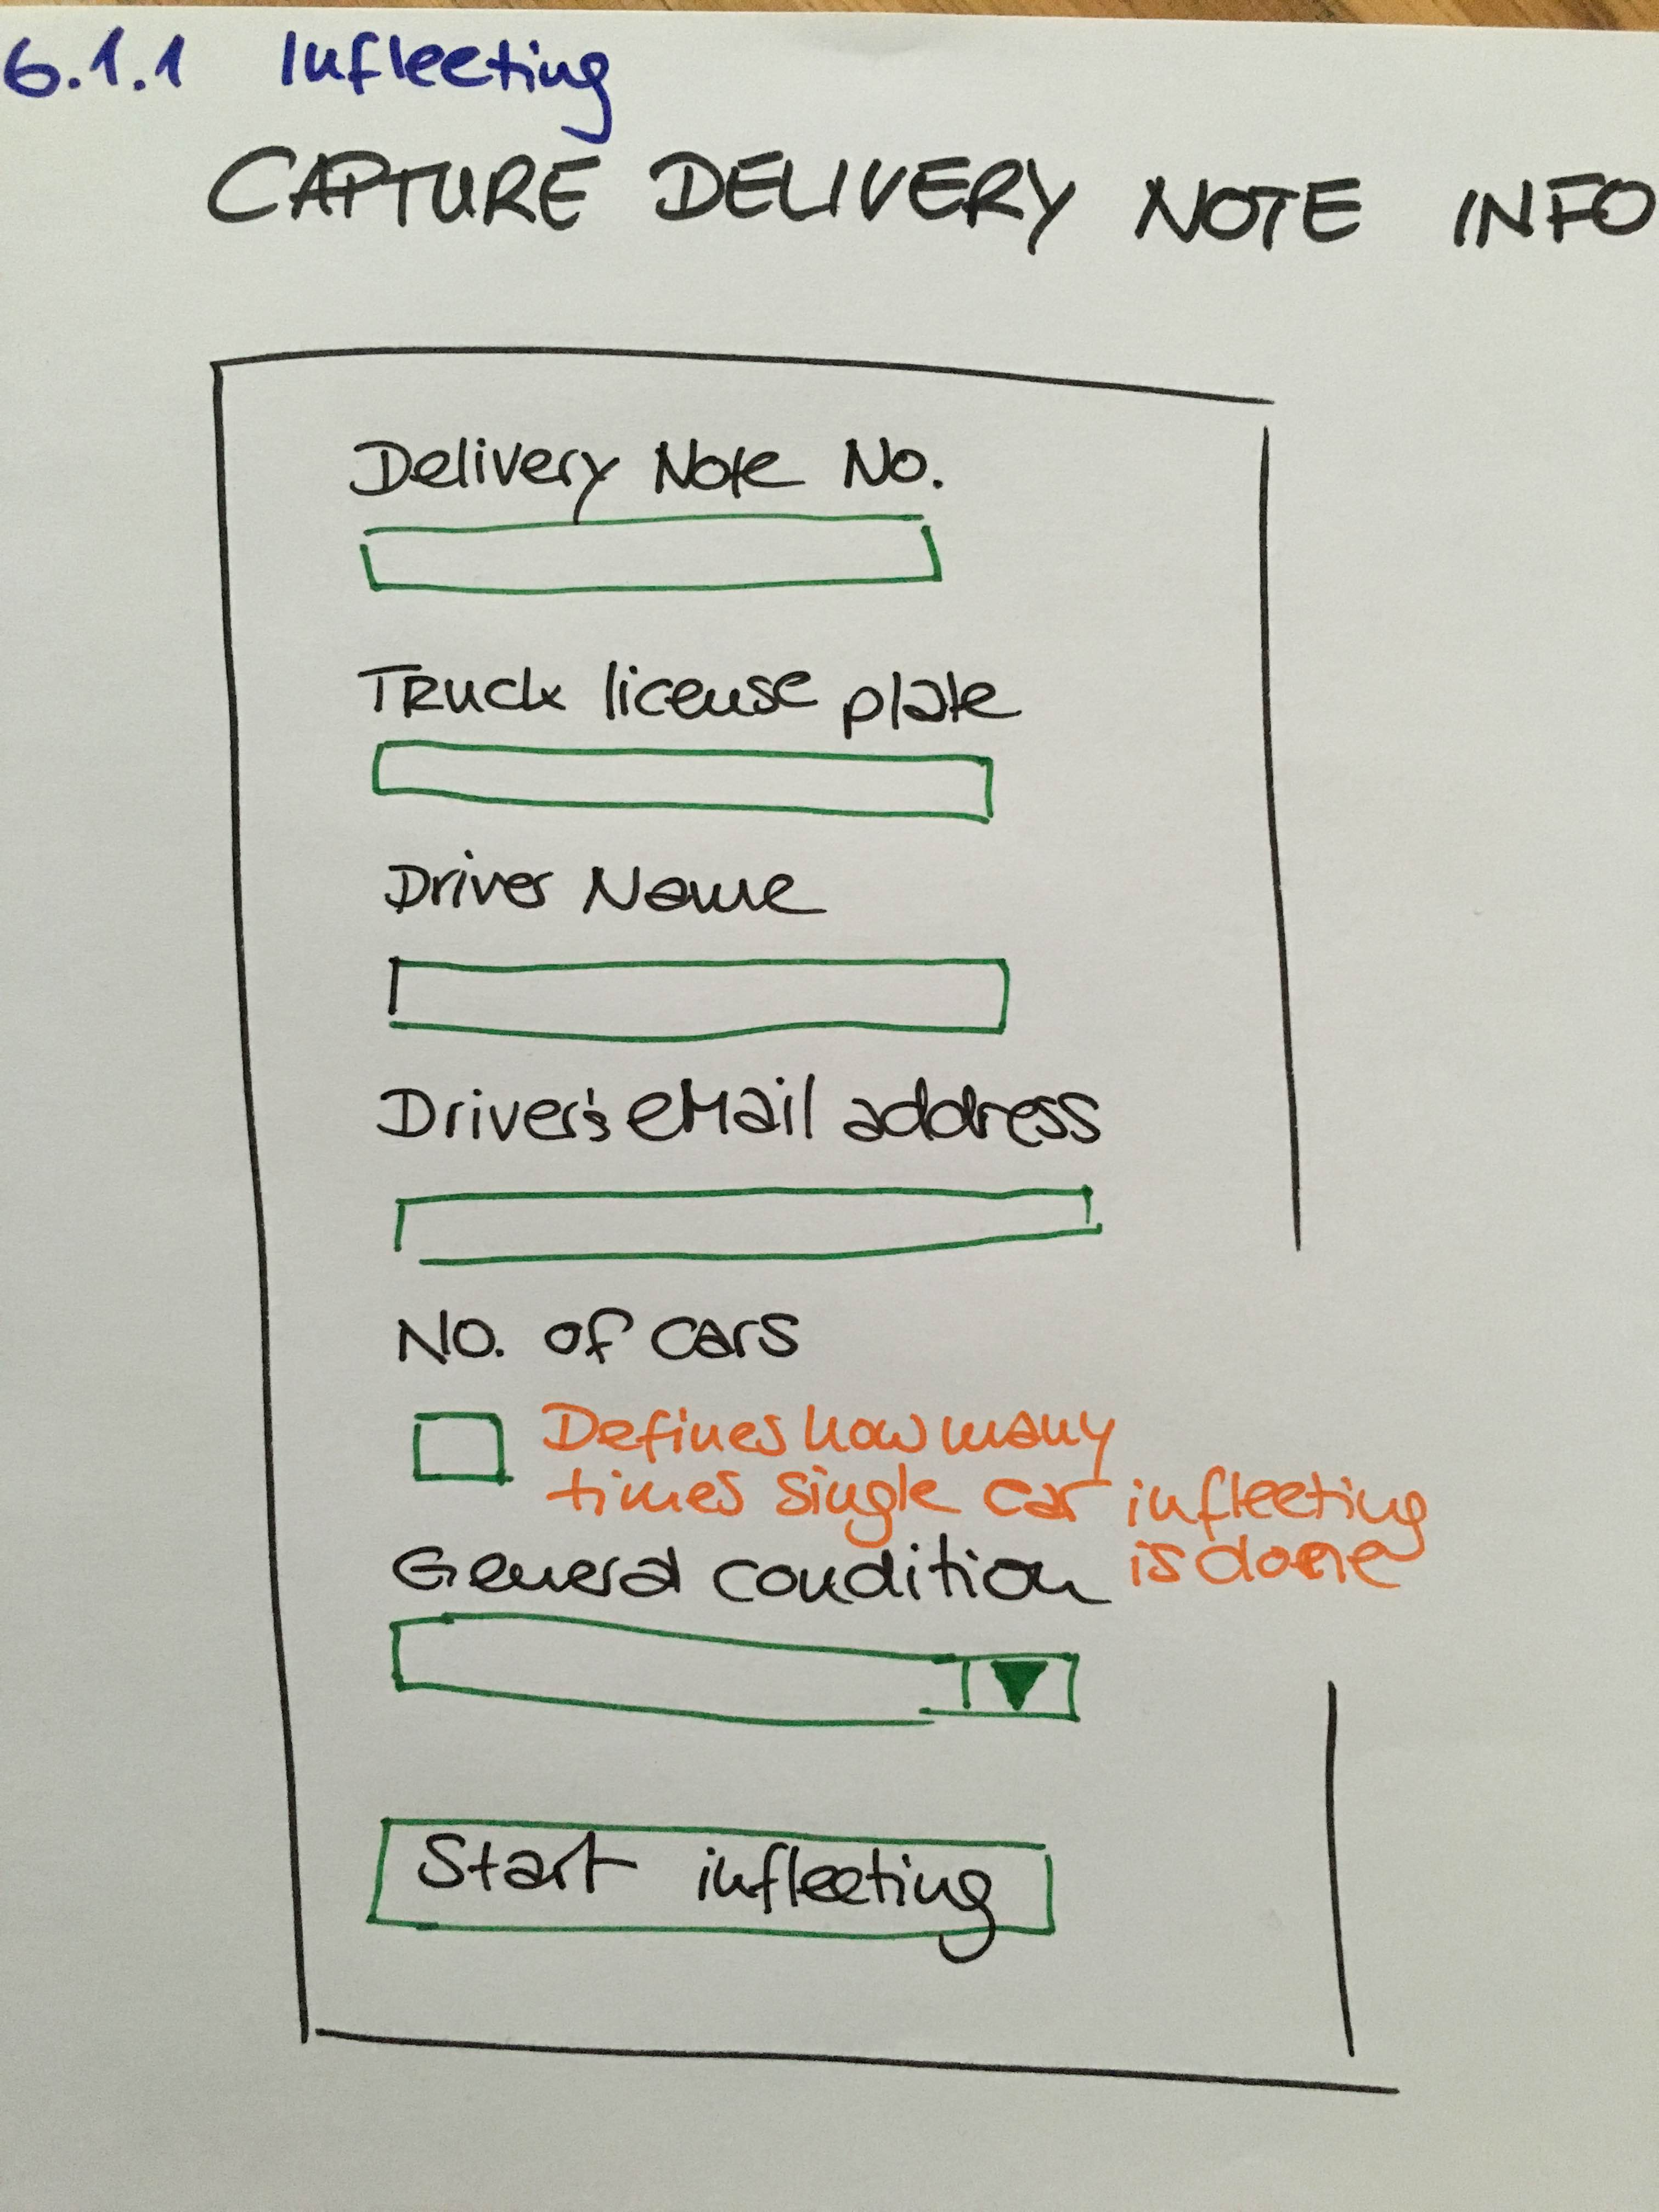 6.1.1 Infleeting
CAPTURE DELIVERY NOTE INFO
Delivery Note No.
Truck license plate
Driver Name
Driver's eMail address
No. of cars
Defines how many
times single car infleeting
is done
General condition
Start infleeting